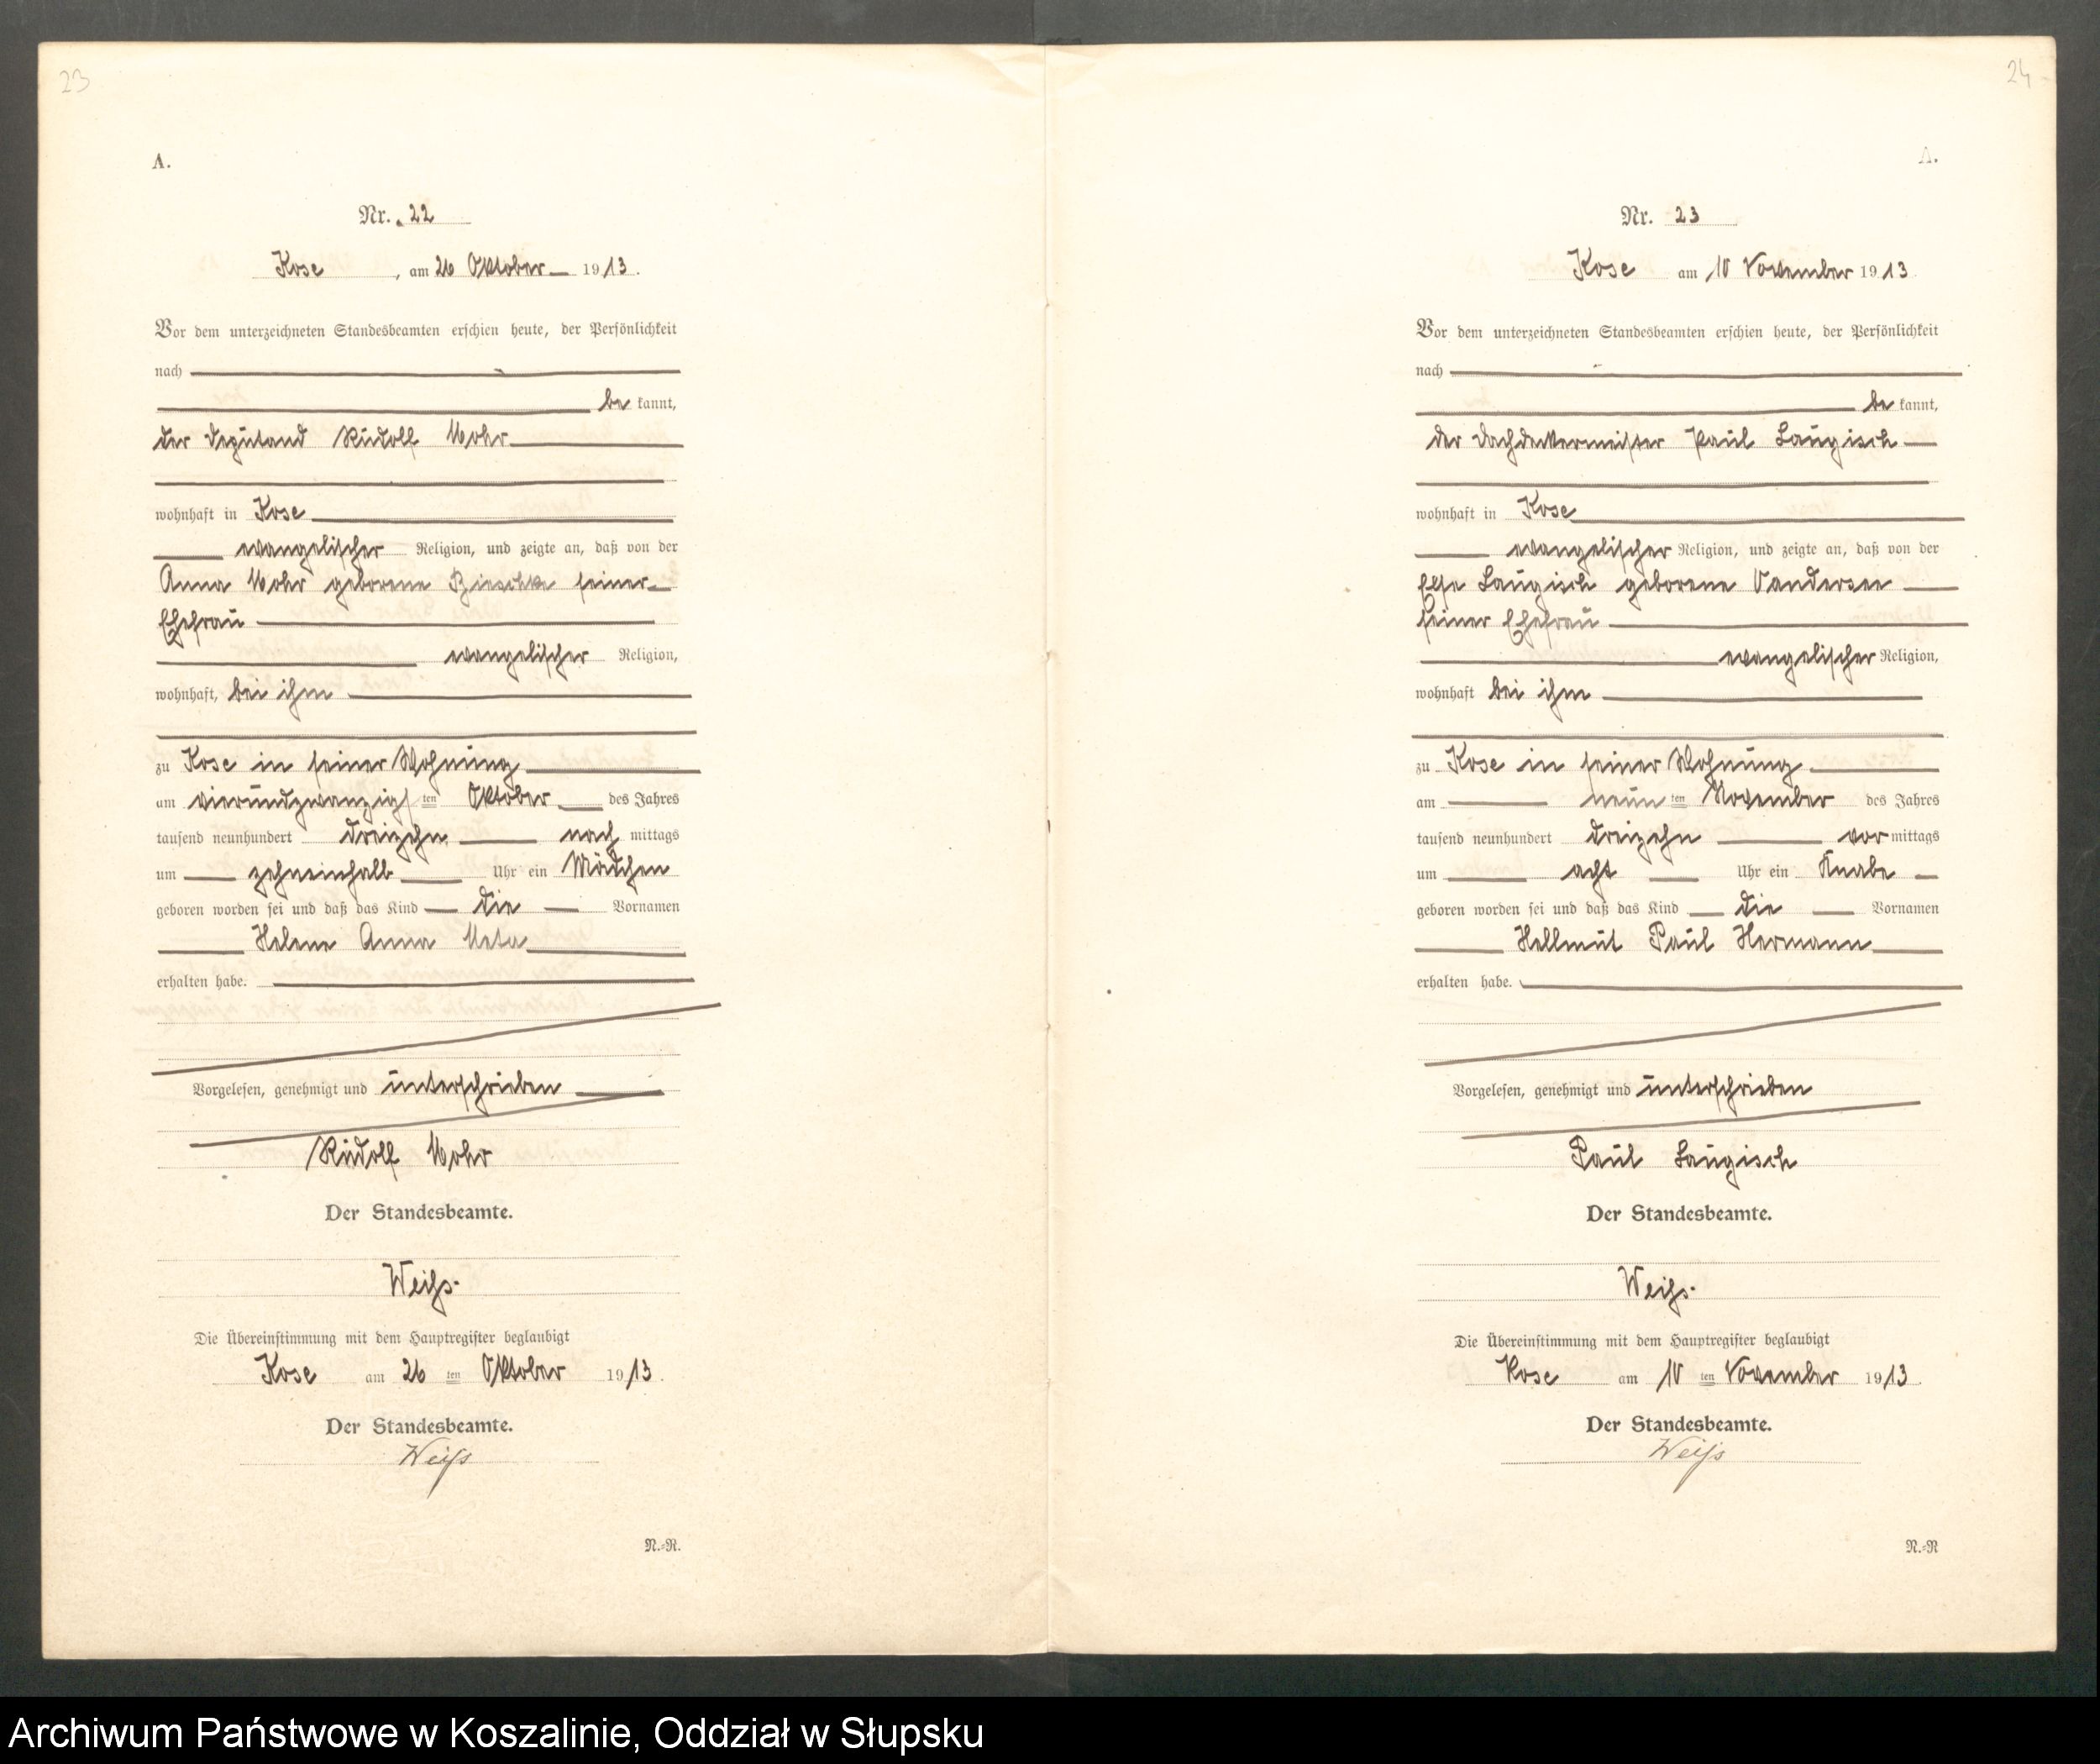 23
A.
Nr. 22
Kose, am 26 Oktober 1913.
Vor dem unterzeichneten Standesbeamten erschien heute, der Persönlichkeit
nach
be kannt,
der Deputand Rudolf Mohr
wohnhaft in Kose
evangelischer Religion, und zeigte an, daß von der
Anna Mohr geborene seiner
Ehefrau
evangelischer Religion,
wohnhaft, bei ihm
zu Kose in seiner Wohnung
am vierundzwanzigsten Oktober des Jahres
tausend neunhundert dreizehn nach mittags
um zehneinhalb Uhr ein Mädchen
geboren worden sei und daß das Kind die Vornamen
Helene Anna Meta
erhalten habe.
Vorgelesen, genehmigt und unterschrieben
Rudolf Mohr
Der Standesbeamte.
Weiß.
Die Übereinstimmung mit dem Hauptregister beglaubigt
Kose am 26 ten Oktober 1913.
Der Standesbeamte.
Weiß
N.=R.
24
A.
Nr. 23
Kose am 10 November 1913.
Vor dem unterzeichneten Standesbeamten erschien heute, der Persönlichkeit
nach
be kannt,
der Dachdeckermeister Paul Laugisch
wohnhaft in Kose
evangelischer Religion, und zeigte an, daß von der
Else Laugisch geborene Vandersee
seiner Ehefrau
evangelischer Religion,
wohnhaft bei ihm
zu Kose in seiner Wohnung
am neunten November des Jahres
tausend neunhundert dreizehn vor mittags
um acht Uhr ein Knabe
geboren worden sei und daß das Kind die Vornamen
Hellmut Paul Hermann
erhalten habe.
Vorgelesen, genehmigt und unterschrieben
Paul Laugisch
Der Standesbeamte.
Weiß.
Die Übereinstimmung mit dem Hauptregister beglaubigt
Kose am 10 ten November 1913.
Der Standesbeamte.
Weiß
N.=R
Archiwum Państwowe w Koszalinie, Oddział w Słupsku